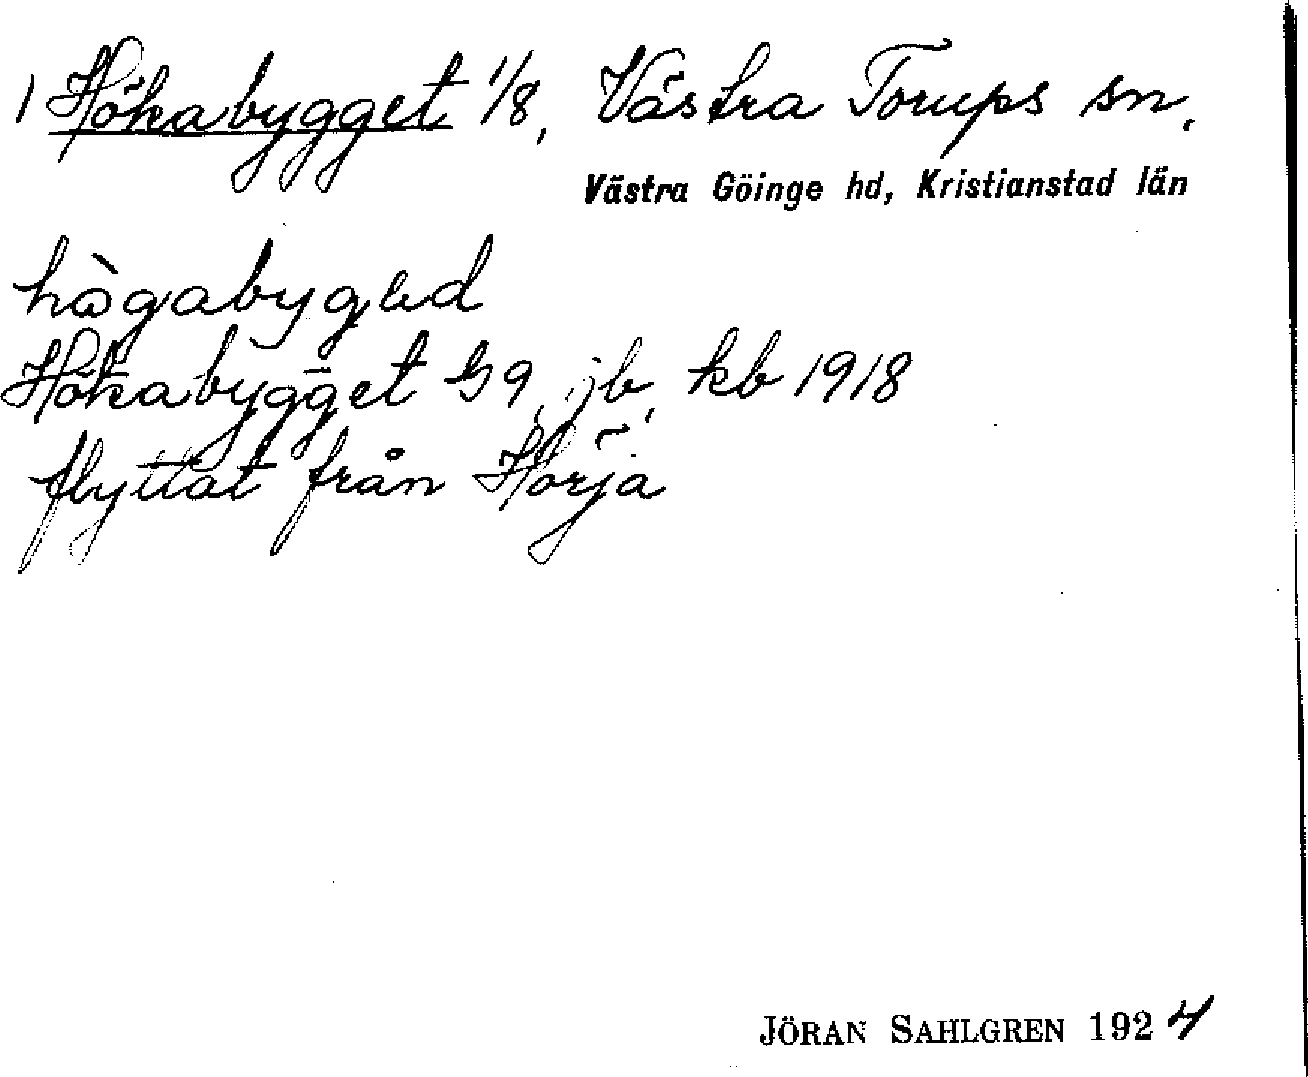 1 Hökabygget 1/8, Västra Torups sn.
Västra Göinge hd, Kristianstad län
Hökabygget 59, jb, kb 1918
flyttat från Hörja
JÖRAN SAHLGREN 1924